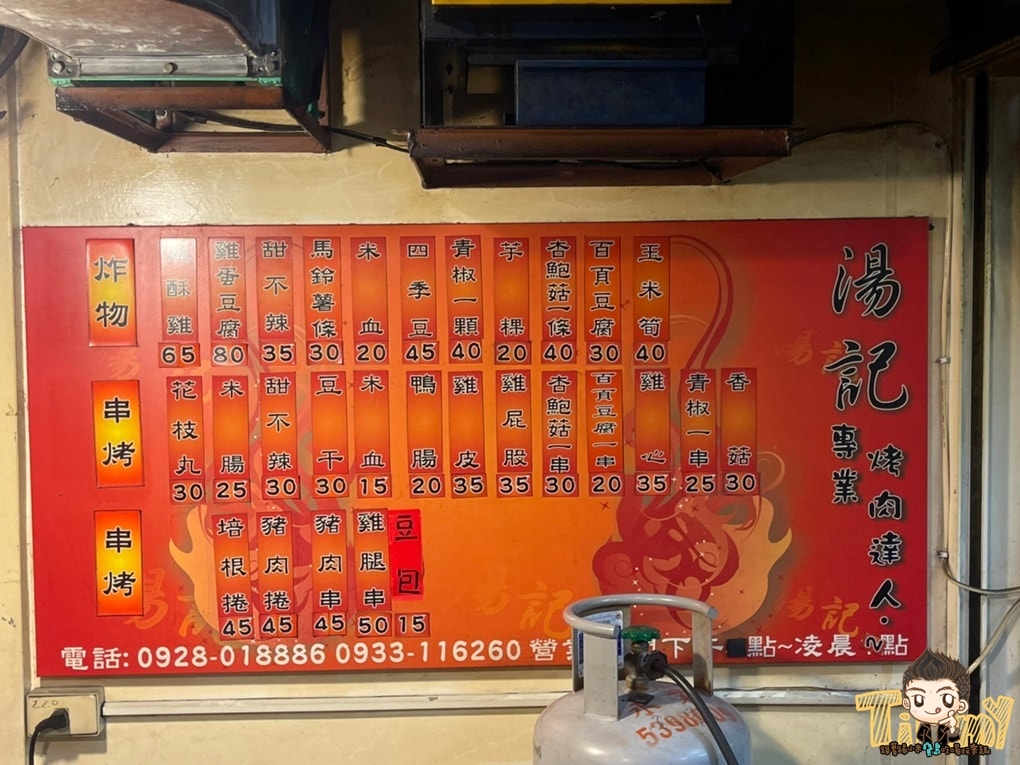 湯記
專業
烤肉達人
炸物
酥雞 65
雞蛋豆腐 80
甜不辣 35
馬鈴薯條 30
米血 20
四季豆 45
青椒一顆 40
芋粿 20
杏鮑菇一條 40
百頁豆腐 30
玉米筍 40
串烤
花枝丸 30
米腸 25
甜不辣 30
豆干 30
米血 15
鴨腸 20
雞皮 35
雞屁股 35
杏鮑菇一串 30
百頁豆腐一串 20
雞心 35
青椒一串 25
香菇 30
串烤
培根捲 45
豬肉捲 45
豬肉串 45
雞腿串 50
豆包 15
電話: 0928-018886 0933-116260 營
下 點~凌晨 點
Timmy